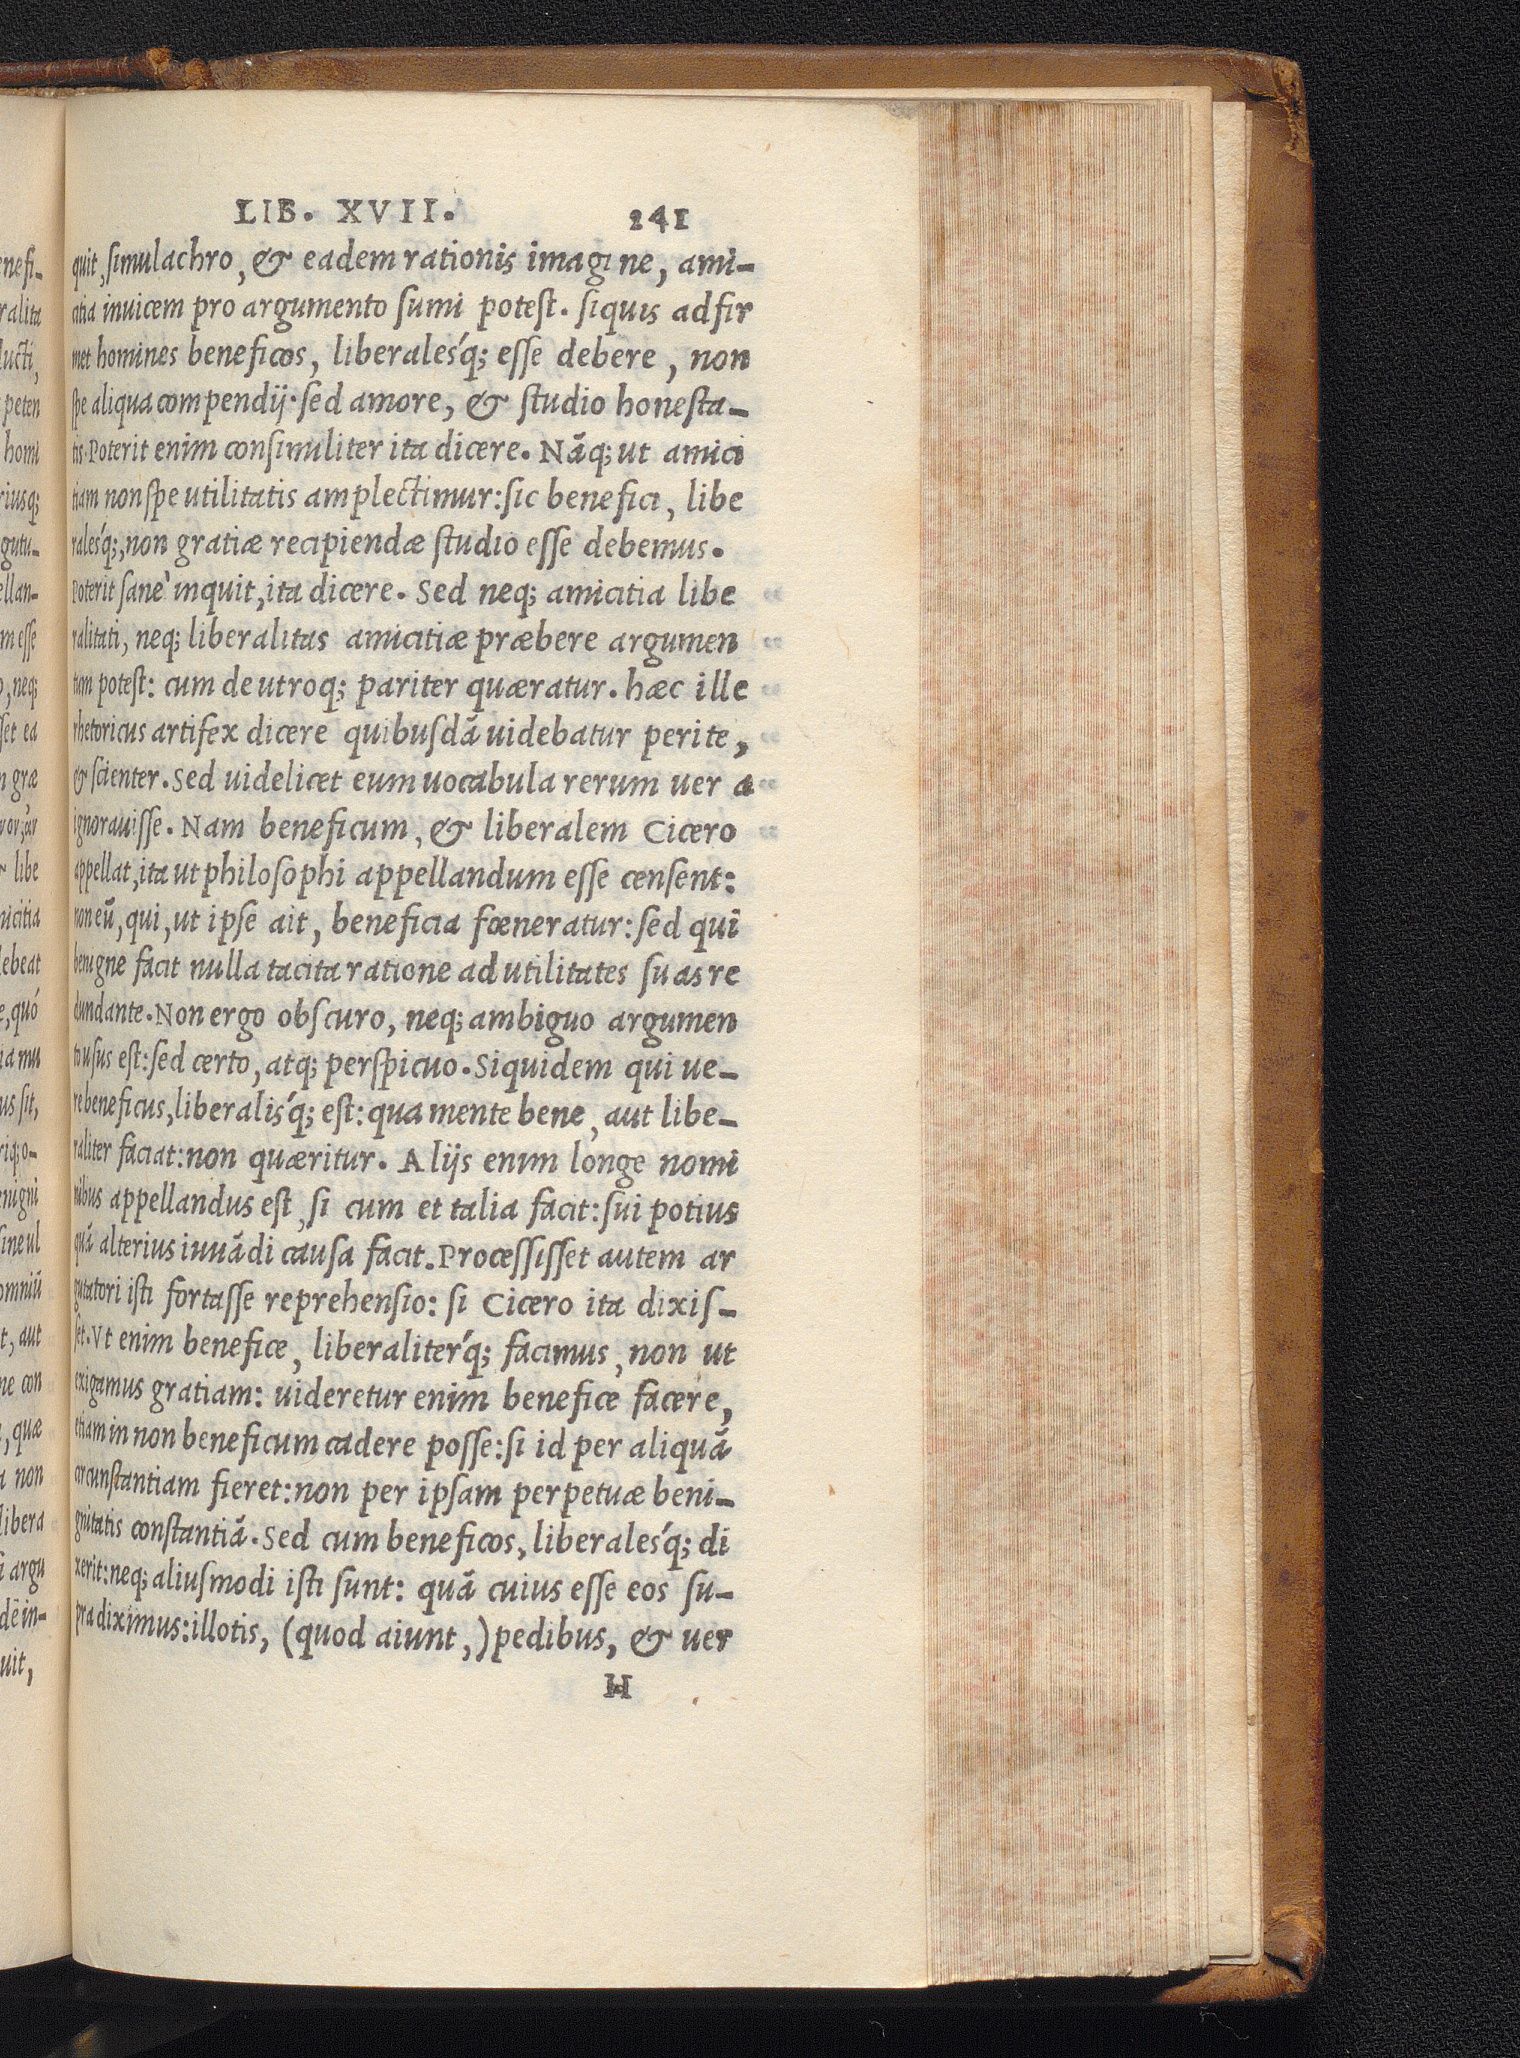 LIB. XVII. 241
quit, simulachro, & eadem rationis imagine, ami-
citia inuicem pro argumento sumi potest. siquis adfir
met homines beneficos, liberalesq́; esse debere, non
spe aliqua compendij: sed amore, & studio honesta-
tis. Poterit enim consimiliter ita dicere. Nāq; ut amici
tiam non spe utilitatis amplectimur: sic benefici, libe
ralesq́;, non gratiæ recipiendæ studio esse debemus.
Poterit sanè inquit, ita dicere. Sed neq; amicitia libe
ralitati, neq; liberalitas amicitiæ præbere argumen
tum potest: cum de utroq; pariter quæratur. hæc ille
rhetoricus artifex dicere quibusdā uidebatur perite,
& scienter. Sed uidelicet eum uocabula rerum uera
ignorauisse. Nam beneficum, & liberalem Cicero
appellat, ita ut philosophi appellandum esse censent:
non eū, qui, ut ipse ait, beneficia fœneratur: sed qui
benigne facit nulla tacita ratione ad utilitates suas re
dundante. Non ergo obscuro, neq; ambiguo argumen
to usus est: sed certo, atq; perspicuo. Siquidem qui ue-
re beneficus, liberalisq́; est: qua mente bene, aut libe-
raliter faciat: non quæritur. Alijs enim longe nomi
nibus appellandus est, si cum et talia facit: sui potius
quā alterius iuuādi causa facit. Processisset autem ar
gutatori isti fortasse reprehensio: si Cicero ita dixis-
set. Vt enim benefice, liberaliterq́; facimus, non ut
exigamus gratiam: uideretur enim benefice facere,
etiam in non beneficum cadere posse: si id per aliquā
circunstantiam fieret: non per ipsam perpetuæ beni-
gnitatis constantiā. Sed cum beneficos, liberalesq́; di
xerit: neq; aliusmodi isti sunt: quā cuius esse eos su-
pra diximus: illotis, (quod aiunt,) pedibus, & uer
H